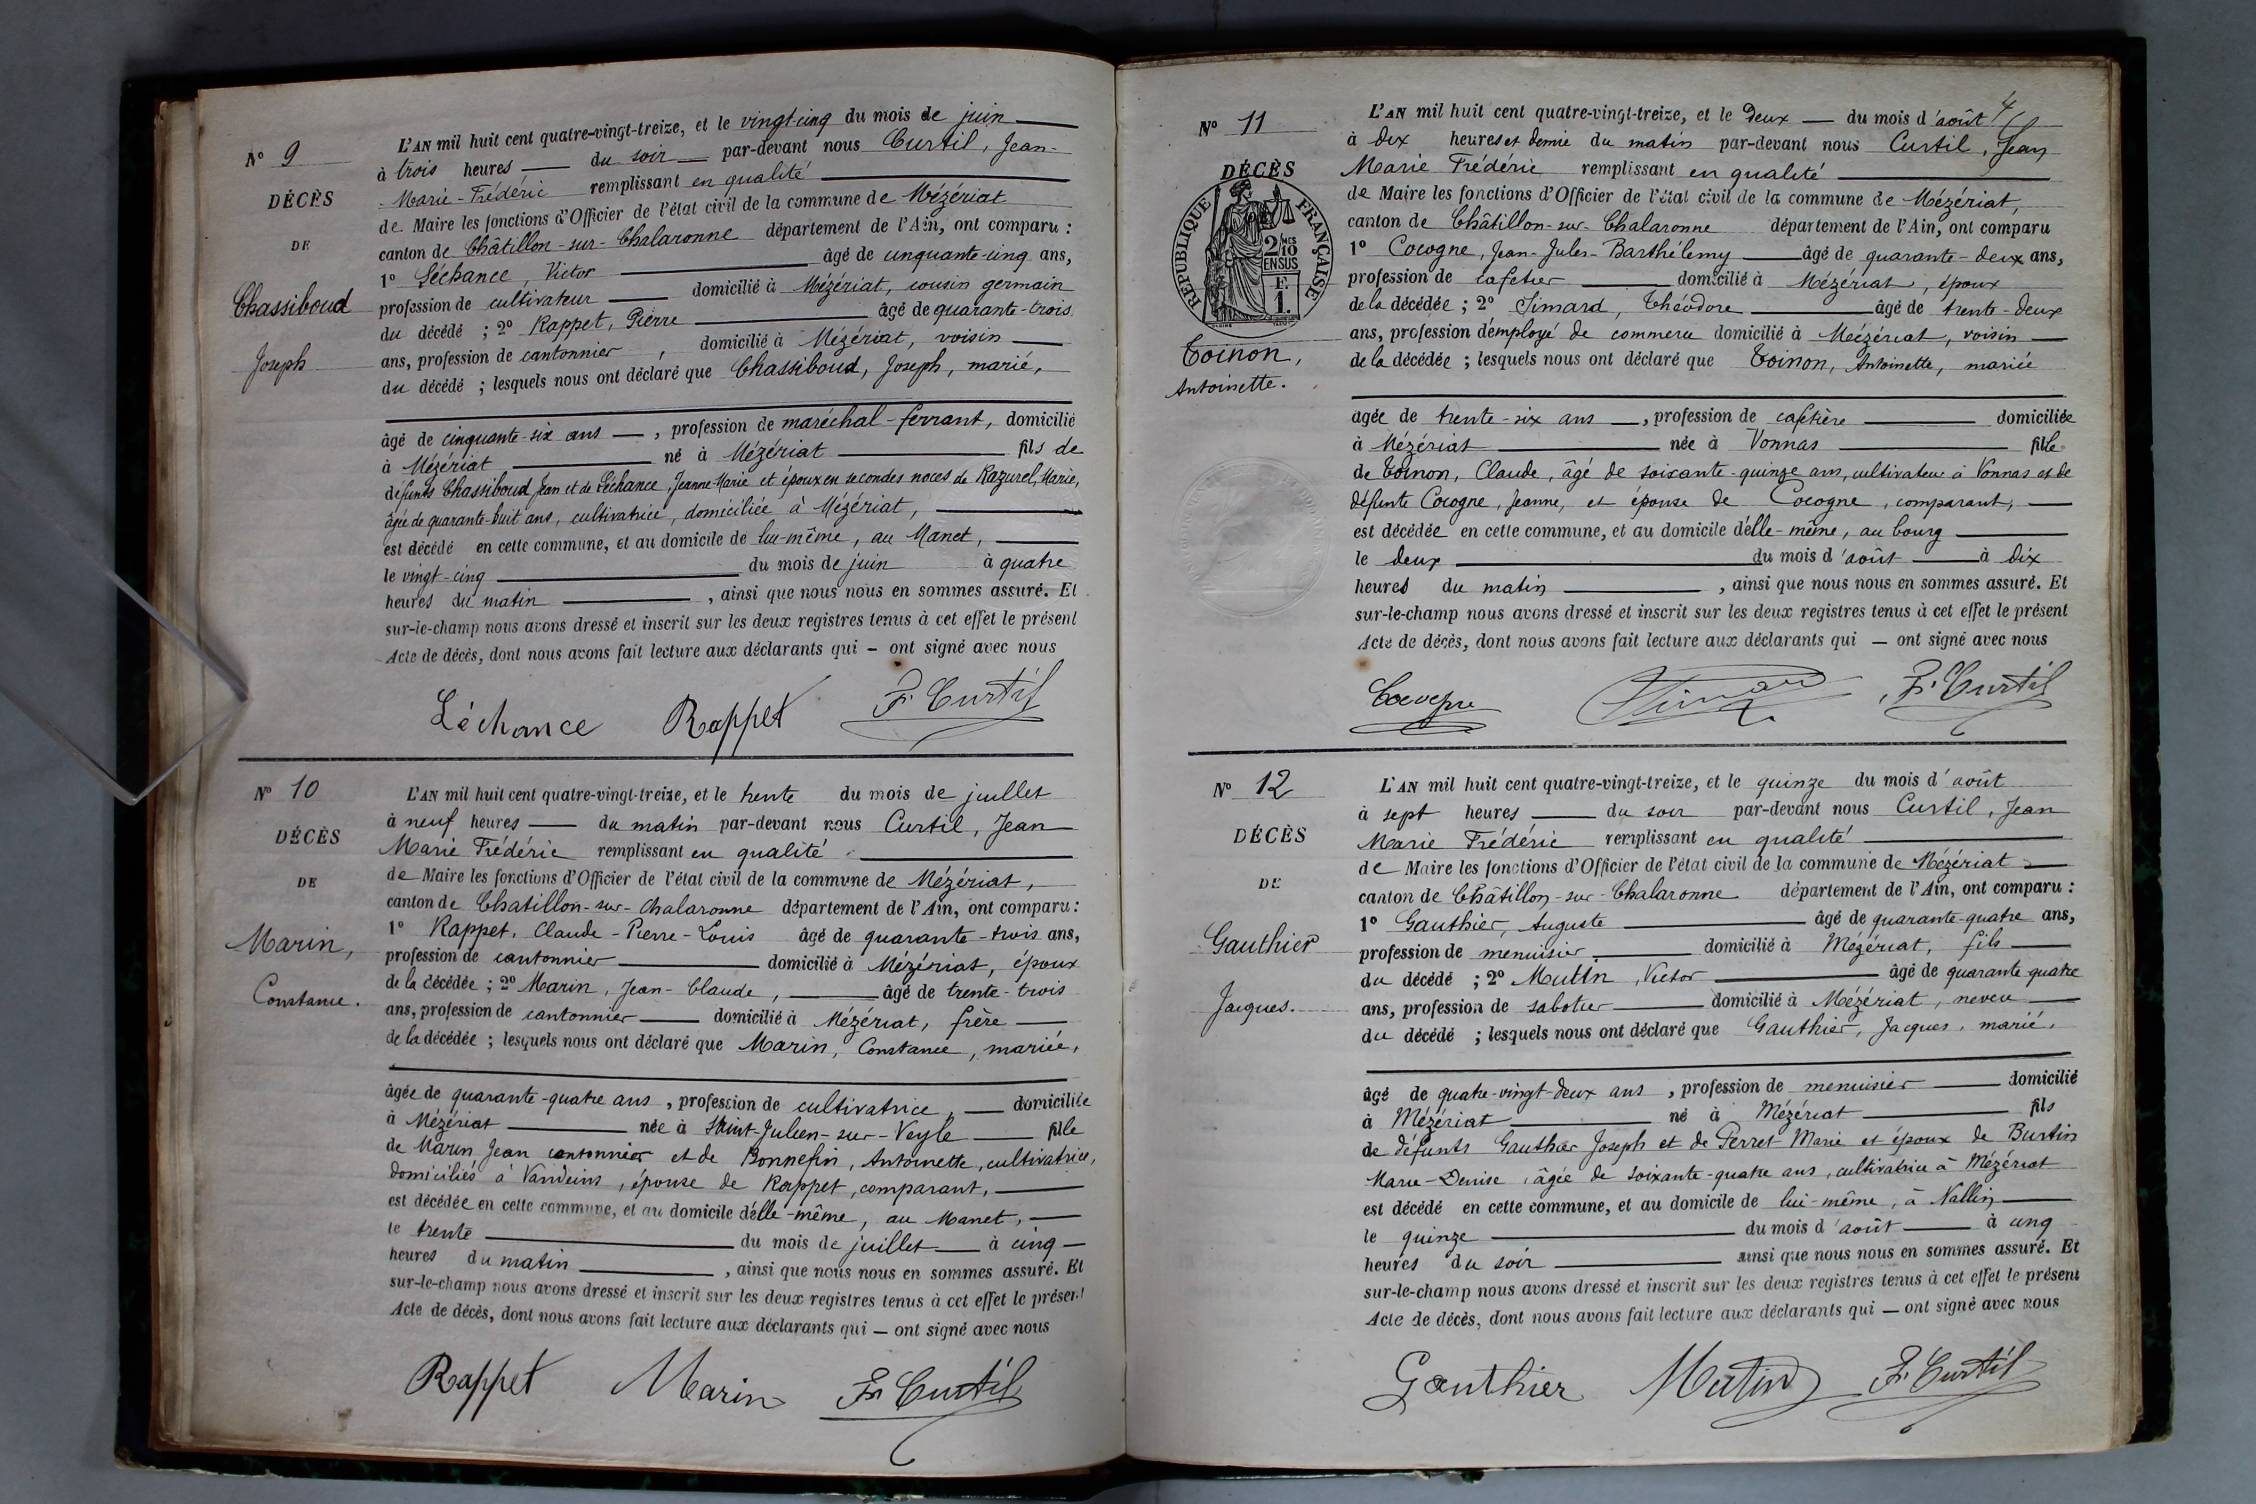 N° 9
DÉCÈS
DE
Chassiboud
Joseph
L'AN mil huit cent quatre-vingt-treize, et le vingt-cinq du mois de juin
à trois heures du soir par-devant nous Curtil, Jean-
Marie-Frédéric remplissant en qualité
de Maire les fonctions d'Officier de l'état civil de la commune de Mézériat
canton de Châtillon-sur-Chalaronne département de l'Ain, ont comparu :
1° Léchance, Victor âgé de cinquante-cinq ans,
profession de cultivateur domicilié à Mézériat, cousin germain
du décédé ; 2° Rappet, Pierre âgé de quarante-trois
ans, profession de cantonnier, domicilié à Mézériat, voisin
du décédé ; lesquels nous ont déclaré que Chassiboud, Joseph, marié,
âgé de cinquante-six ans, profession de maréchal-ferrant, domicilié
à Mézériat né à Mézériat fils de
défunts Chassiboud Jean et de Léchance, Jeanne-Marie et époux en secondes noces de Razurel, Marie,
âgée de quarante-huit ans, cultivatrice, domiciliée à Mézériat,
est décédé en cette commune, et au domicile de lui-même, au Manet,
le vingt-cinq du mois de juin à quatre
heures du matin, ainsi que nous nous en sommes assuré. Et
sur-le-champ nous avons dressé et inscrit sur les deux registres tenus à cet effet le présent
Acte de décès, dont nous avons fait lecture aux déclarants qui – ont signé avec nous
Léchance Rappet F. Curtil
N° 10
DÉCÈS
DE
Marin,
Constance.
L'AN mil huit cent quatre-vingt-treize, et le trente du mois de juillet
à neuf heures du matin par-devant nous Curtil, Jean
Marie Frédéric remplissant en qualité
de Maire les fonctions d'Officier de l'état civil de la commune de Mézériat,
canton de Chatillon-sur-Chalaronne département de l'Ain, ont comparu :
1° Rappet, Claude-Pierre-Louis âgé de quarante-trois ans,
profession de cantonnier domicilié à Mézériat, époux
de la décédée ; 2° Marin, Jean-Claude, âgé de trente-trois
ans, profession de cantonnier domicilié à Mézériat, frère
de la décédée ; lesquels nous ont déclaré que Marin, Constance, mariée,
âgée de quarante-quatre ans, profession de cultivatrice, domiciliée
à Mézériat née à Saint-Julien-sur-Veyle fille
de Marin Jean cantonnier et de Bonnefin, Antoinette, cultivatrice,
domiciliés à Vandeins, épouse de Rappet, comparant,
est décédée en cette commune, et au domicile d'elle-même, au Manet,
le trente du mois de juillet à cinq
heures du matin, ainsi que nous nous en sommes assuré. Et
sur-le-champ nous avons dressé et inscrit sur les deux registres tenus à cet effet le présent
Acte de décès, dont nous avons fait lecture aux déclarants qui – ont signé avec nous
Rappet Marin Fr Curtil
4
N° 11
DÉCÈS
RÉPUBLIQUE FRANÇAISE
2/10
EN SUS
F.
1.
Toinon,
Antoinette.
L'AN mil huit cent quatre-vingt-treize, et le deux du mois d'août
à dix heures et demie du matin par-devant nous Curtil, Jean
Marie Frédéric remplissant en qualité
de Maire les fonctions d'Officier de l'état civil de la commune de Mézériat,
canton de Châtillon-sur-Chalaronne département de l'Ain, ont comparu
1° Cocogne, Jean-Jules-Barthélemy âgé de quarante-deux ans,
profession de cafetier domicilié à Mézériat, époux
de la décédée ; 2° Simard, Théodore âgé de trente-deux
ans, profession d'employé de commerce domicilié à Mézériat, voisin
de la décédée ; lesquels nous ont déclaré que Toinon, Antoinette, mariée
agée de trente-six ans, profession de cafetière domiciliée
à Mézériat née à Vonnas fille
de Toinon, Claude, âgé de soixante-quinze ans, cultivateur à Vonnas et de
défunte Cocogne, Jeanne, et épouse de Cocogne, comparant,
est décédée en cette commune, et au domicile d'elle-même, au bourg
le deux du mois d'août à dix
heures du matin, ainsi que nous nous en sommes assuré. Et
sur-le-champ nous avons dressé et inscrit sur les deux registres tenus à cet effet le présent
Acte de décès, dont nous avons fait lecture aux déclarants qui – ont signé avec nous
F. Curtil
N° 12
DÉCÈS
DE
Gauthier
Jacques.
L'AN mil huit cent quatre-vingt-treize, et le quinze du mois d'août
à sept heures du soir par-devant nous Curtil, Jean
Marie Frédéric remplissant en qualité
de Maire les fonctions d'Officier de l'état civil de la commune de Mézériat
canton de Châtillon-sur-Chalaronne département de l'Ain, ont comparu :
1° Gauthier, Auguste âgé de quarante-quatre ans,
profession de menuisier domicilié à Mézériat, fils
du décédé ; 2° Mutin, Victor âgé de quarante quatre
ans, profession de sabotier domicilié à Mézériat, neveu
du décédé ; lesquels nous ont déclaré que Gauthier, Jacques, marié,
âgé de quatre-vingt-deux ans, profession de menuisier domicilié
à Mézériat né à Mézériat fils
de défunts Gauthier Joseph et de Perret Marie et époux de Burtin
Marie-Denise, âgée de soixante-quatre ans, cultivatrice à Mézériat
est décédé en cette commune, et au domicile de lui-même, à Nallin
le quinze du mois d'août à cinq
heures du soir ainsi que nous nous en sommes assuré. Et
sur-le-champ nous avons dressé et inscrit sur les deux registres tenus à cet effet le présent
Acte de décès, dont nous avons fait lecture aux déclarants qui – ont signé avec nous
Gauthier Mutin F. Curtil